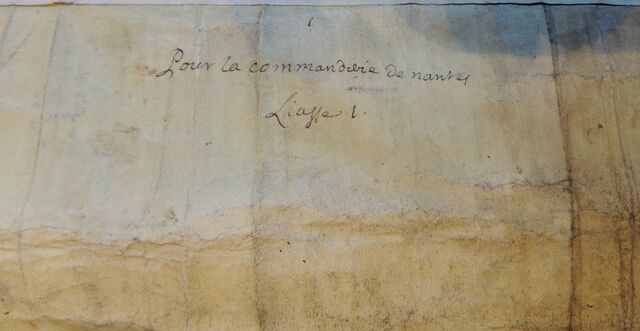 1
Pour la commanderie de nantes
Liasse 1.